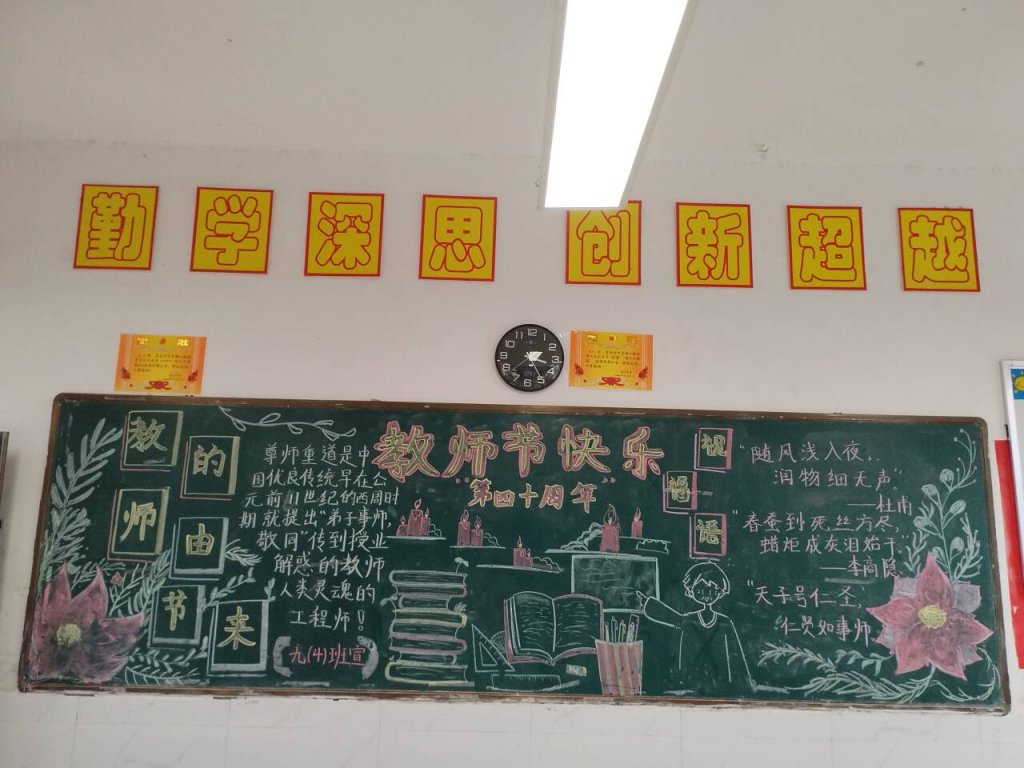 勤学深思创新超越
教师节的由来
尊师重道是中
国优良传统早在公
元前11世纪的西周时
期就提出"弟子事师,
敬同"传到授业
解惑的教师
人类灵魂的
工程师!。
九(4)班宣
教师节快乐
第四十周年
祝
语
"随风浅入夜,,
润物细无声"
——杜甫
"春蚕到死丝方尽,
蜡炬成灰泪始干"
——李商隐
"天子号仁圣,
仁贤如事师,
12
1
2
3
4
5
6
7
8
9
10
11